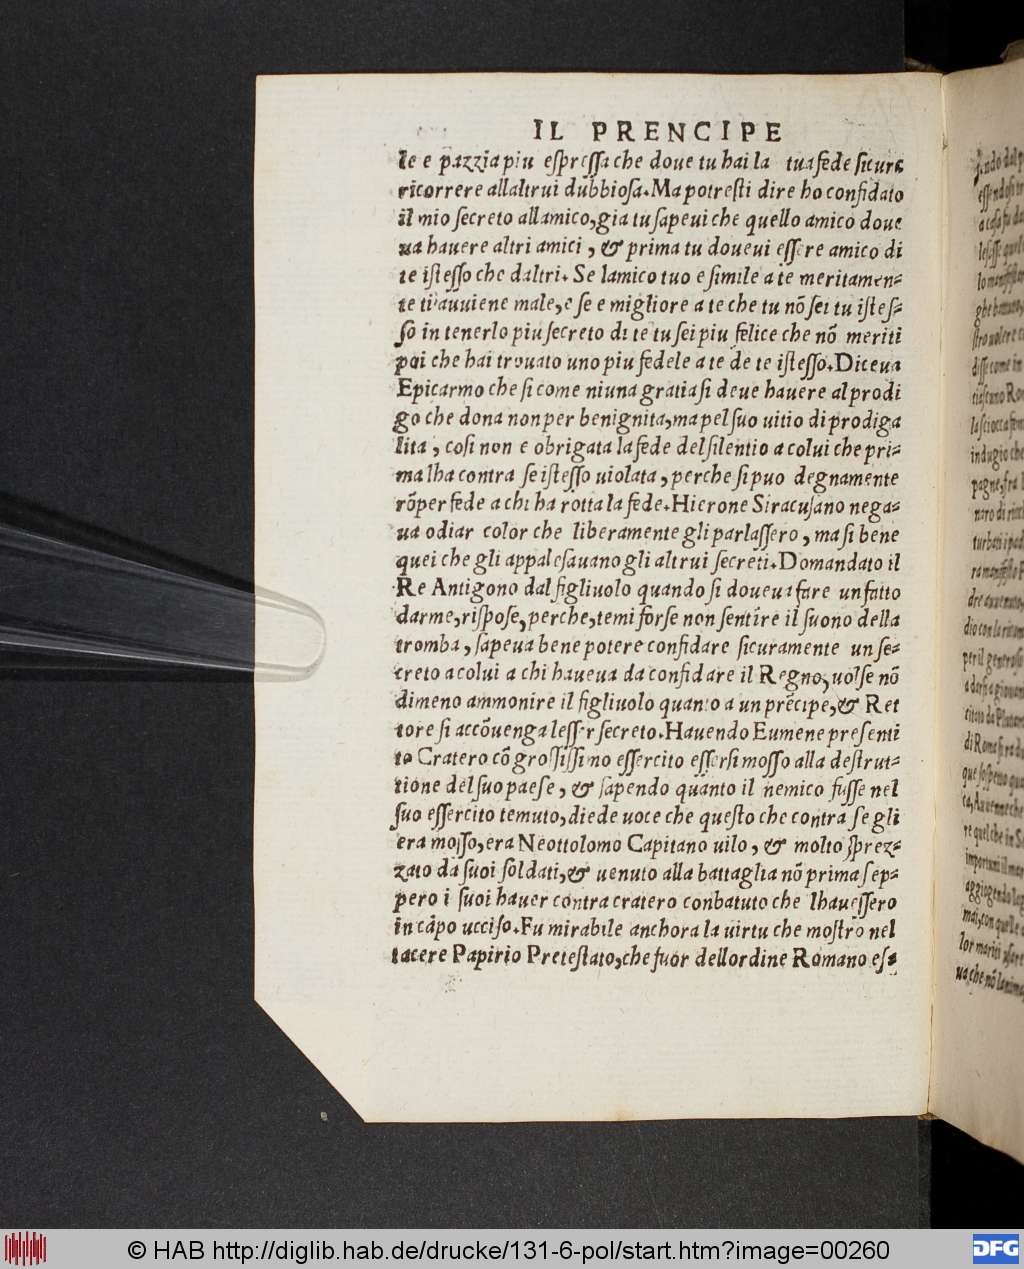 IL PRENCIPE
le e pazzia piu espressa che doue tu hai la tua fede sicura
ricorrere allaltrui dubbiosa. Ma potresti dire ho confidato
il mio secreto allamico, gia tu sapeui che quello amico doue
ua hauere altri amici, & prima tu doueui essere amico di
te istesso che daltri. Se lamico tuo e simile a te meritamen-
te ti auuiene male, e se e migliore a te che tu nõ sei tu istes-
so in tenerlo piu secreto di te tu sei piu felice che nõ meriti
poi che hai trouato uno piu fedele a te de te istesso. Diceua
Epicarmo che si come niuna gratia si deue hauere al prodi
go che dona non per benignita, ma pel suo uitio di prodiga
lita, cosi non e obrigata la fede del silentio a colui che pri-
ma lha contra se istesso uiolata, perche si puo degnamente
rõper fede a chi ha rotta la fede. Hierone Siracusano nega-
ua odiar color che liberamente gli parlassero, ma si bene
quei che gli appalesauano gli altrui secreti. Domandato il
Re Antigono dal figliuolo quando si doueua fare un fatto
darme, rispose, perche, temi forse non sentire il suono della
tromba, sapeua bene potere confidare sicuramente un se-
creto a colui a chi haueua da confidare il Regno, uolse nõ
dimeno ammonire il figliuolo quanto a un prẽcipe, & Ret
tore si accõuenga lesser secreto. Hauendo Eumene presenti
to Cratero cõ grossissimo essercito essersi mosso alla destrut-
tione del suo paese, & sapendo quanto il nemico fusse nel
suo essercito temuto, diede uoce che questo che contra se gli
era mosso, era Neottolomo Capitano uilo, & molto sprez-
zato da suoi soldati, & uenuto alla battaglia nõ prima sep-
pero i suoi hauer contra cratero conbatuto che lhauessero
in cãpo ucciso. Fu mirabile anchora la uirtu che mostro nel
tacere Papirio Pretestato, che fuor dellordine Romano es-
© HAB http://diglib.hab.de/drucke/131-6-pol/start.htm?image=00260
DFG